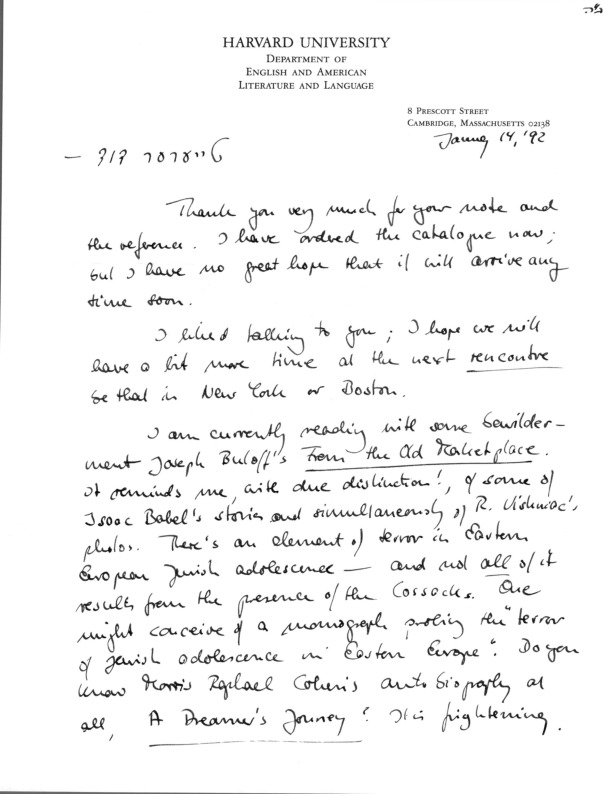 ב״ה
HARVARD UNIVERSITY
DEPARTMENT OF
ENGLISH AND AMERICAN
LITERATURE AND LANGUAGE
8 PRESCOTT STREET
CAMBRIDGE, MASSACHUSETTS 02138
January 14, '92
טייערער דוד —
Thank you very much for your note and
the reference. I have ordered the catalogue now;
but I have no great hope that it will arrive any
time soon.
I liked talking to you; I hope we will
have a bit more time at the next rencontre
be that in New York or Boston.
I am currently reading with some bewilder-
ment Joseph Buloff's From the Old Marketplace.
It reminds me, with due distinction!, of some of
Isaac Babel's stories and simultaneously of R. Vishniac's
photos. There's an element of terror in Eastern
European Jewish adolescence — and not all of it
results from the presence of the Cossacks. One
might conceive of a monograph probing the "terror
of Jewish adolescence in Eastern Europe". Do you
know Morris Raphael Cohen's autobiography at
all, A Dreamer's Journey? It is frightening.